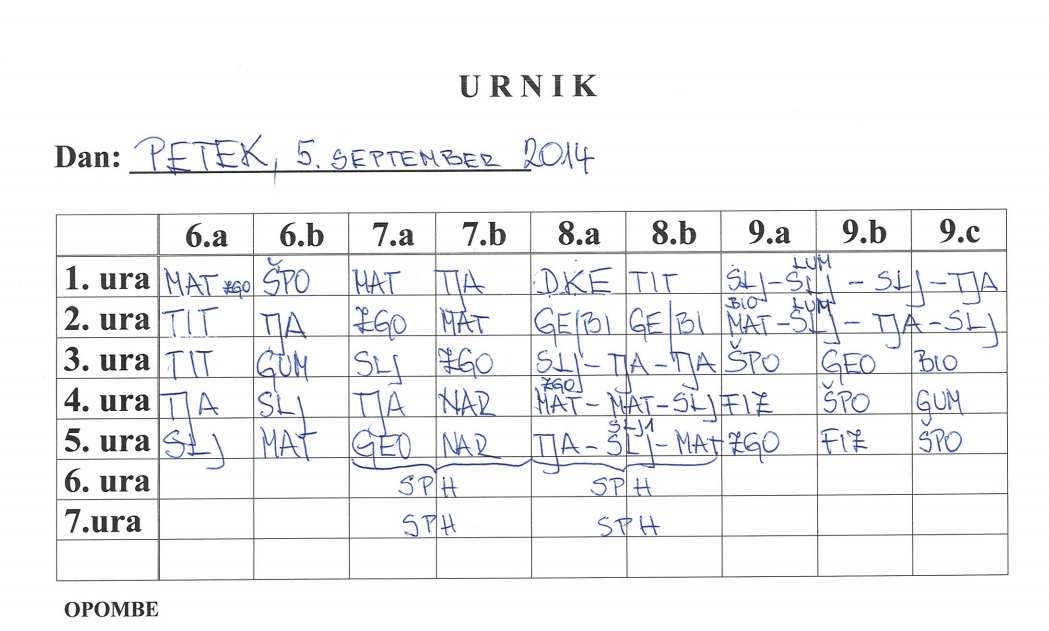 URNIK
Dan: PETEK, 5. SEPTEMBER 2014
6.a 6.b 7.a 7.b 8.a 8.b 9.a 9.b 9.c
LUM
1. ura MAT ZGO ŠPO MAT TJA DKE TIT SLJ - SLJ - SLJ - TJA
BIO LUM
2. ura TIT TJA ZGO MAT GE/BI GE/BI MAT - SLJ - TJA - SLJ
3. ura TIT GUM SLJ ZGO SLJ - TJA - TJA ŠPO GEO BIO
ZGO
4. ura TJA SLJ TJA NAR MAT - MAT - SLJ FIZ ŠPO GUM
SLJ1
5. ura SLJ MAT GEO NAR TJA - SLJ - MAT ZGO FIZ ŠPO
6. ura SPH SPH
7.ura SPH SPH
OPOMBE